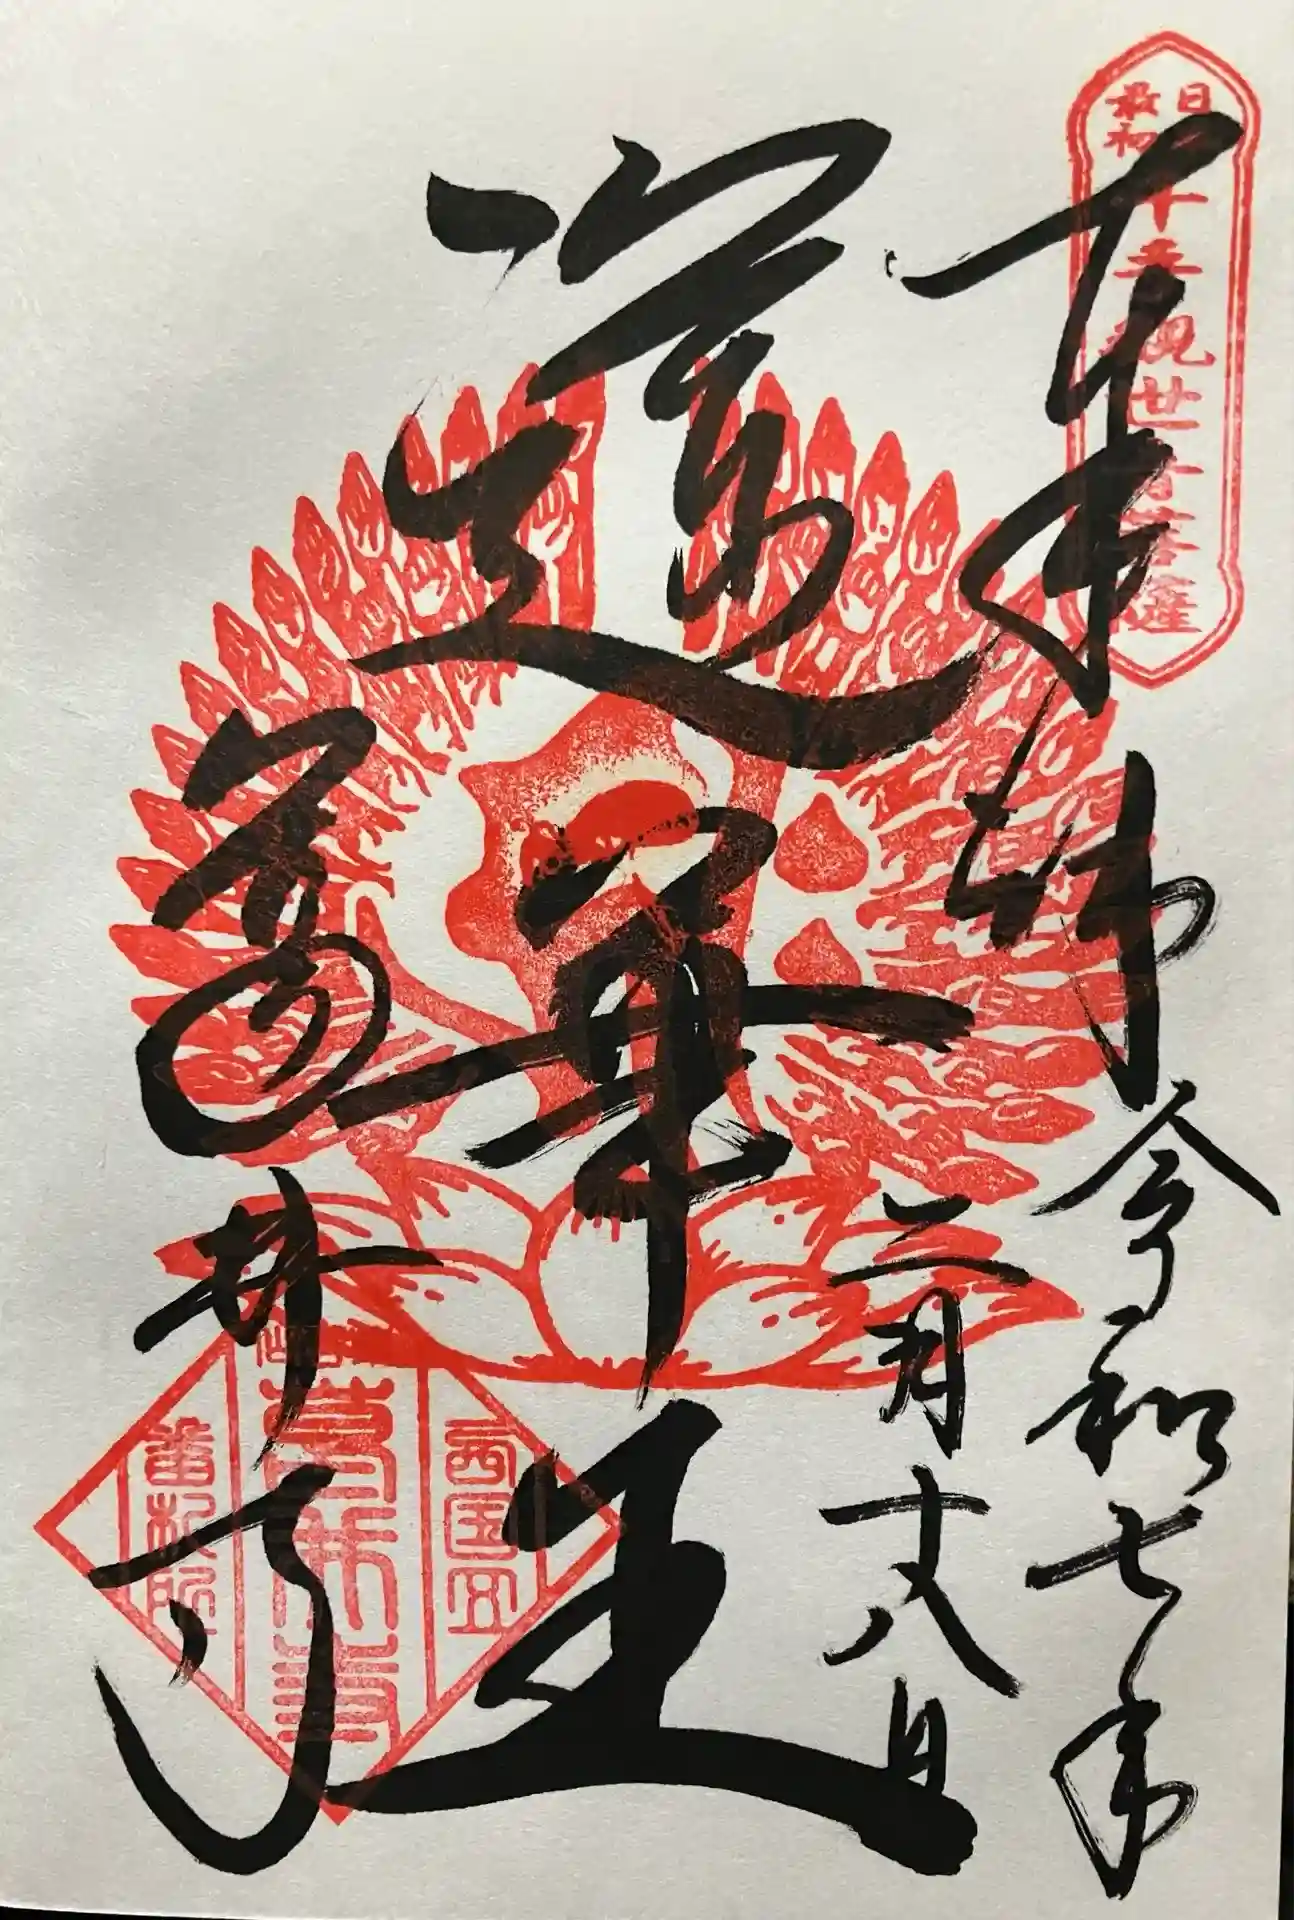 日本
最初
千手観世音菩薩
奉拝
令和七年
二月十八日
蓮華王
葛井寺
西国五
葛井寺
番札所